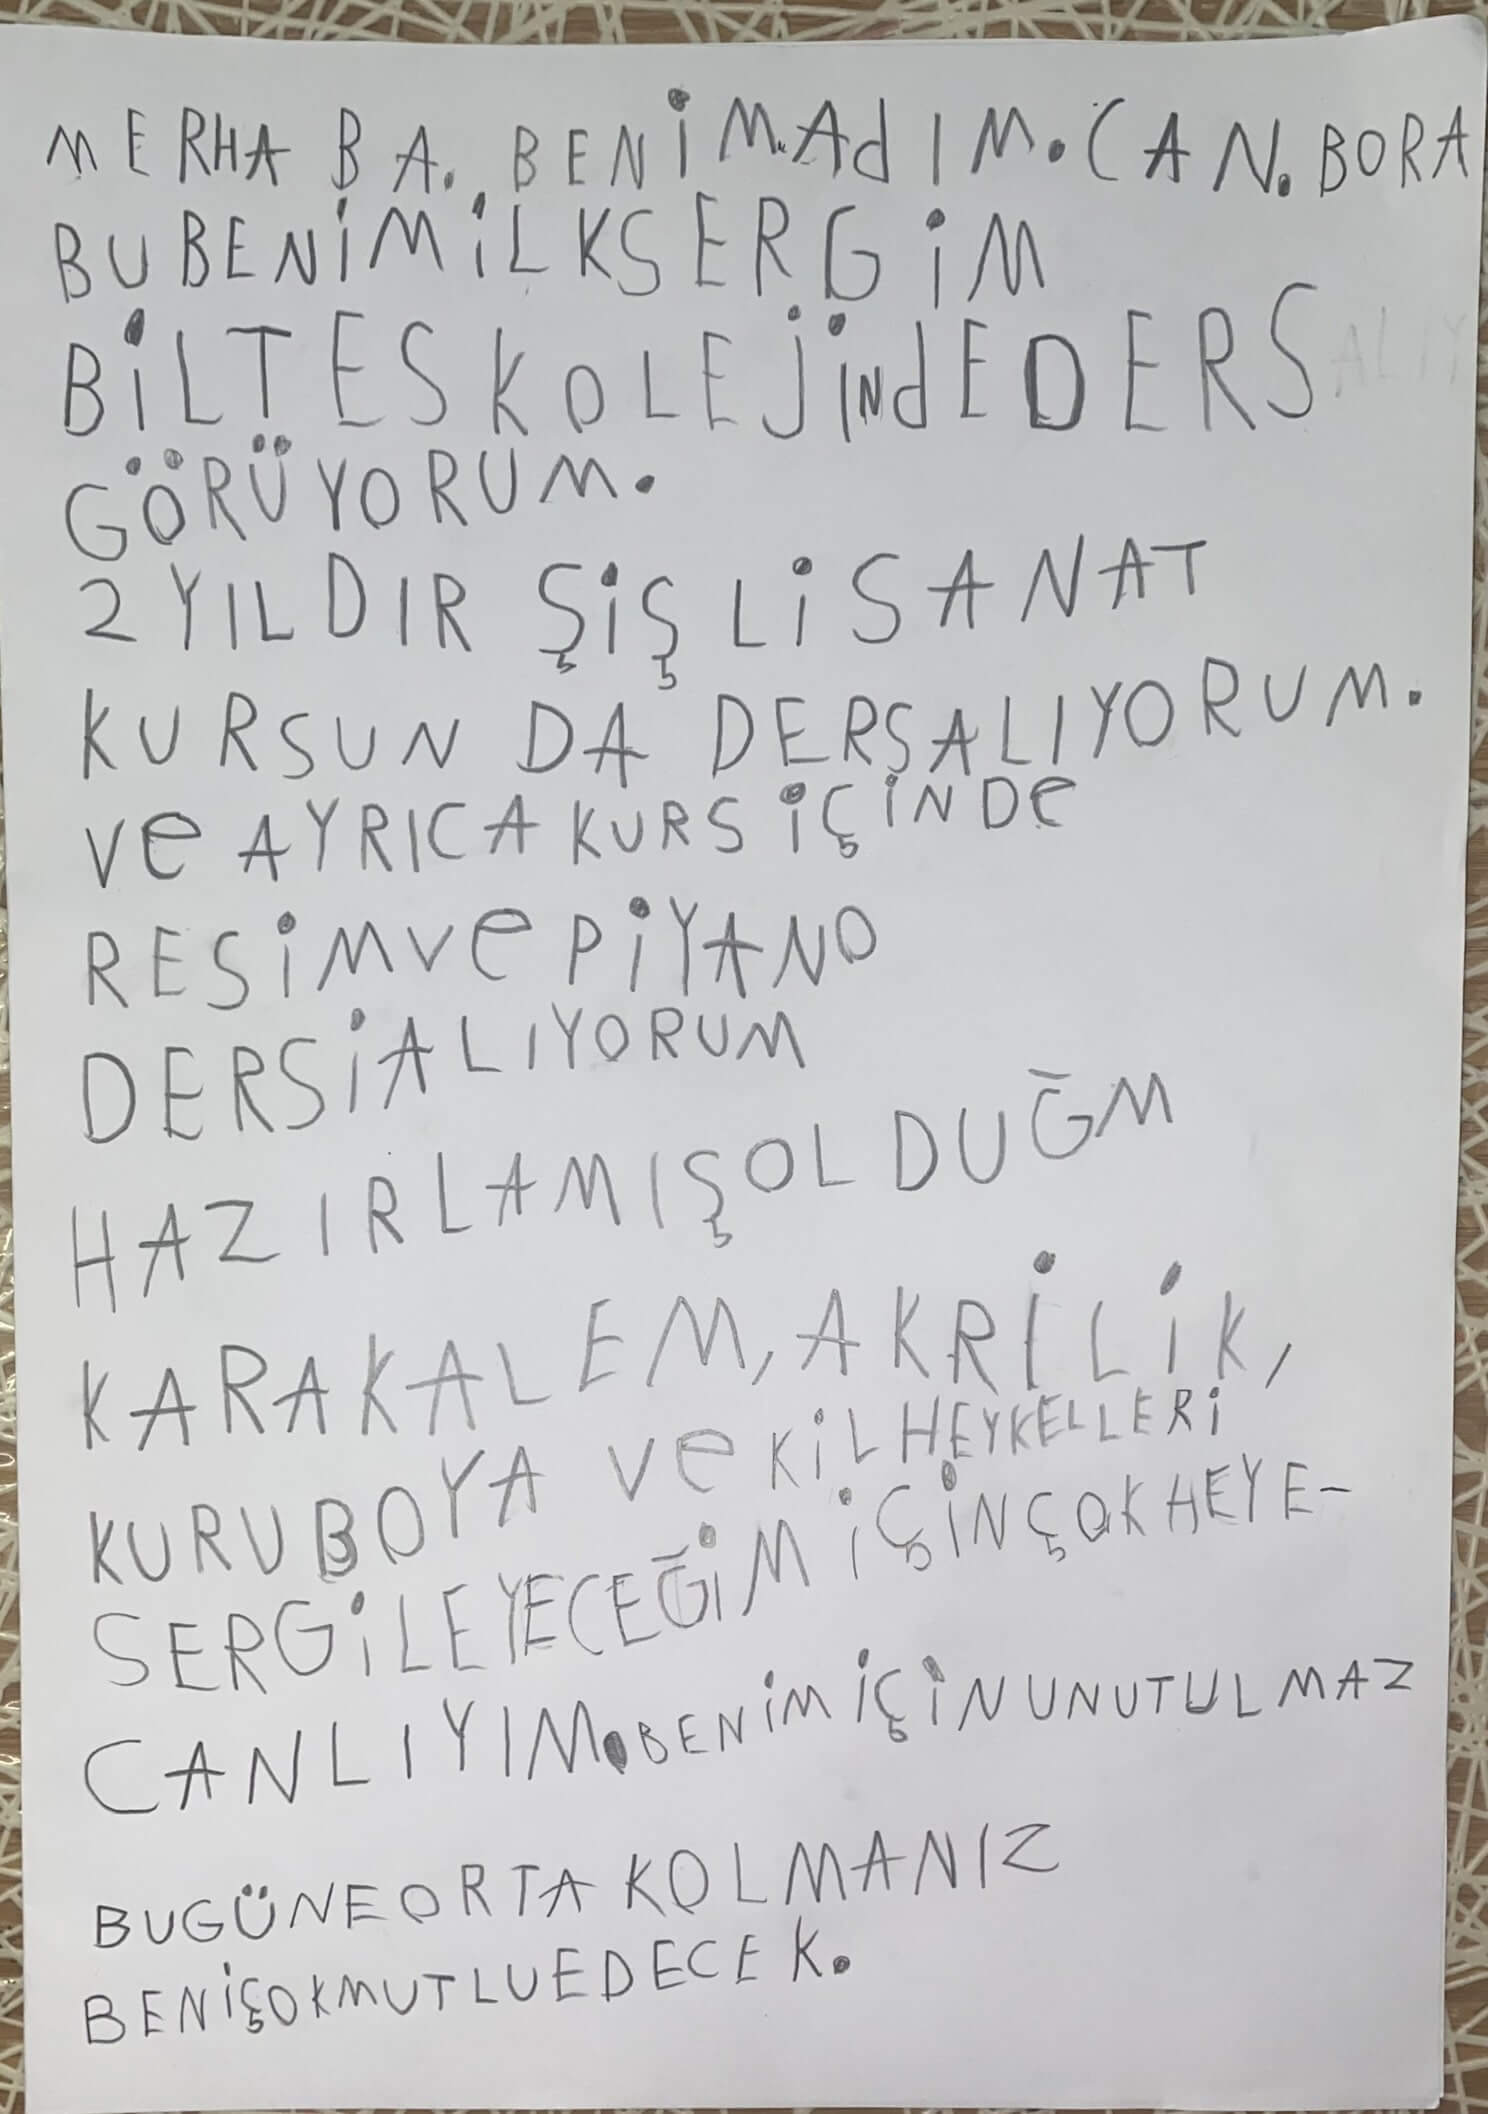 MERHABA. BENİM ADIM. CAN. BORA
BU BENİM İLK SERGİM
BİLTES KOLEJİNDE DERS
GÖRÜYORUM.
2 YILDIR ŞİŞLİ SANAT
KURSUN DA DERS ALIYORUM.
ve AYRICA KURS İÇİNDe
RESİM ve PİYANO
DERSİ ALIYORUM
HAZIRLAMIŞ OLDUĞM
KARAKALEM, AKRİLİK,
KURU BOYA ve KİL HEYKELLERİ
SERGİLEYECEĞİM İÇİN ÇOK HEYE-
CANLIYIM. BENİM İÇİN UNUTULMAZ
BU GÜNE ORTAK OLMANIZ
BENİ ÇOK MUTLU EDECEK.